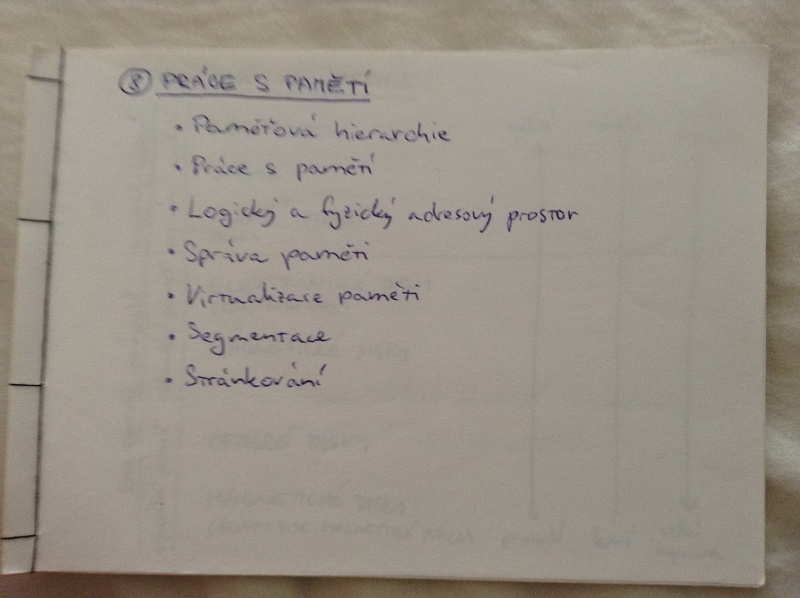 8 PRÁCE S PAMĚTÍ
• Paměťová hierarchie
• Práce s pamětí
• Logický a fyzický adresový prostor
• Správa paměti
• Virtualizace paměti
• Segmentace
• Stránkování